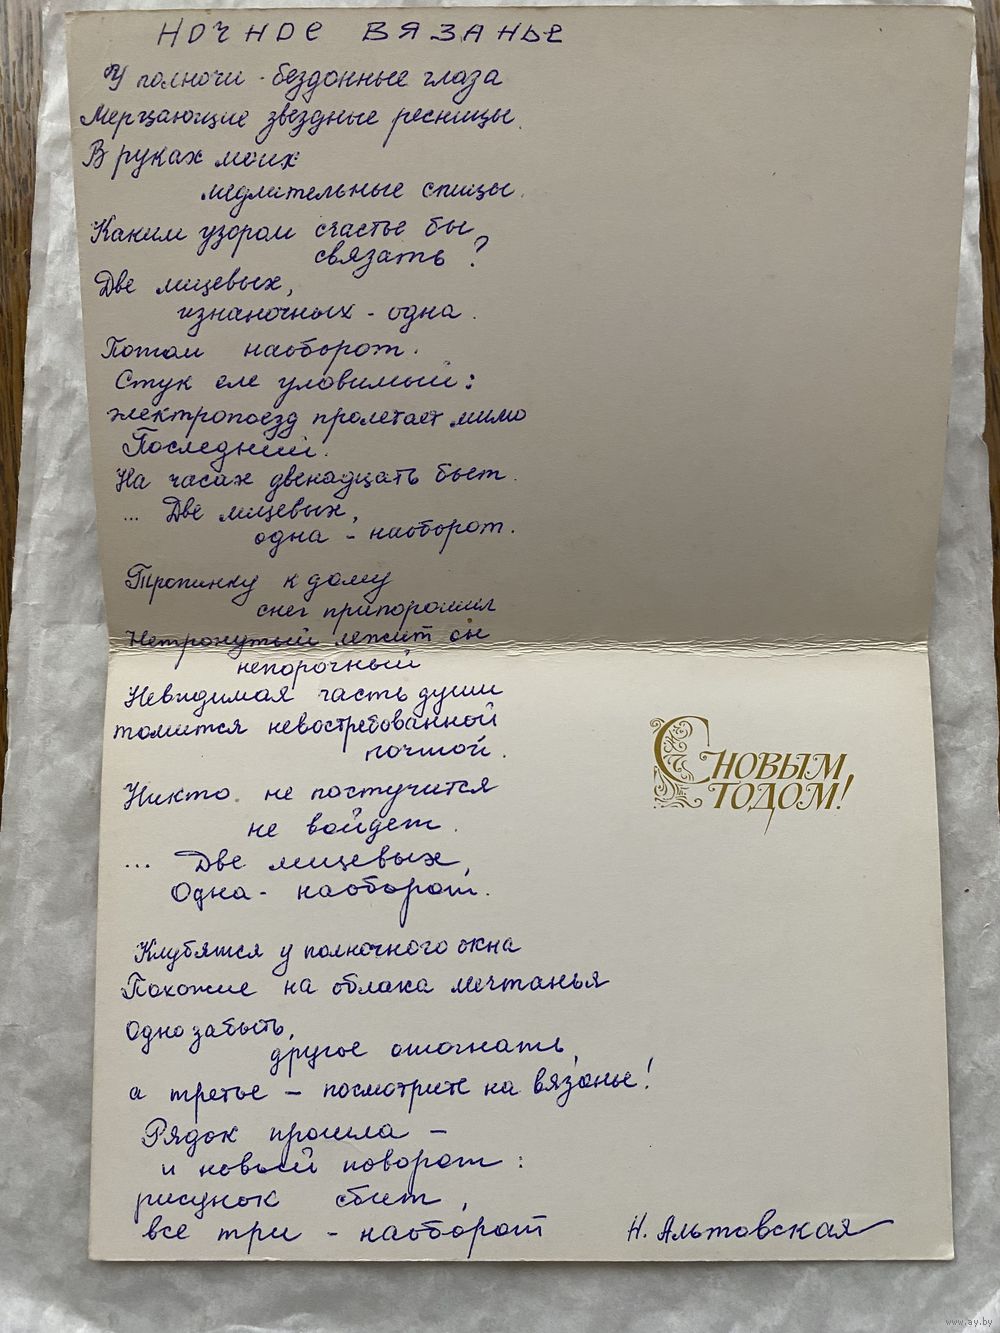 НОЧНОЕ ВЯЗАНЬЕ
У полночи - бездонные глаза
Мерцающие звездные ресницы.
В руках моих
медлительные спицы.
Каким узором счастье бы
связать?
Две лицевых,
изнаночных - одна.
Потом наоборот.
Стук еле уловимый:
электропоезд пролетает мимо
Последний.
На часах двенадцать бьет.
... Две лицевых,
одна - наоборот.
Тропинку к дому
снег припорошил
Нетронутый лежит он
непорочный
Невидимая часть души
томится невостребованной
почтой.
Никто не постучится
не войдет.
... Две лицевых,
Одна - наоборот.
Клубятся у полночного окна
Похожие на облака мечтанья
Одно забыть,
другое отогнать,
а третье - посмотрите на вязанье!
Рядок прошла -
и новый поворот:
рисунок сбит,
все три - наоборот
Н. Альтовская
С НОВЫМ
ГОДОМ!
www.ay.by